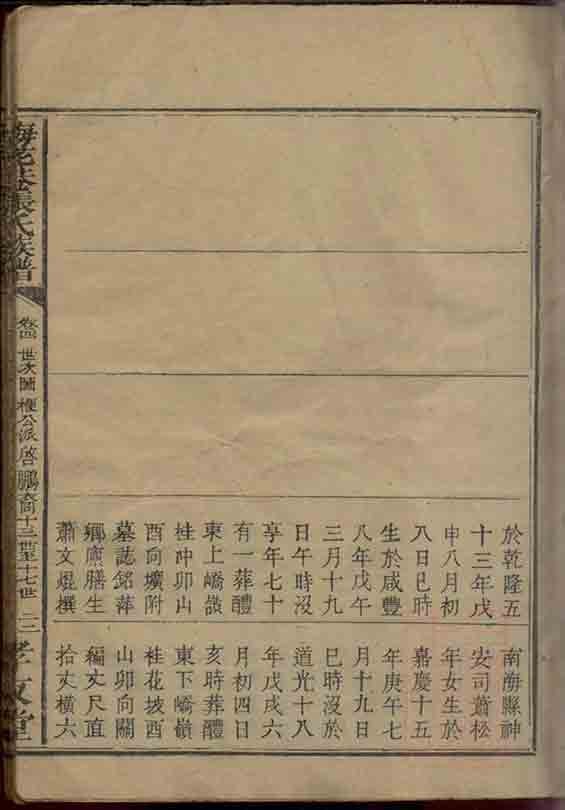 於乾隆五
十三年戊
申八月初
八日巳時
生於咸豐
八年戊午
三月十九
日午時沒
享年七十
有一葬醴
東上嶠嶺
桂冲卯山
酉向壙附
墓誌銘萍
鄉廪膳生
蕭文焜撰
南海縣神
安司蕭松
年女生於
嘉慶十五
年庚午七
月十九日
巳時沒於
道光十八
年戊戌六
月初四日
亥時葬醴
東下嶠嶺
桂花坡酉
山卯向關
編丈尺直
拾丈橫六
張氏族譜
世次圖
公派啓鵬裔十三世至十七世
孝友堂